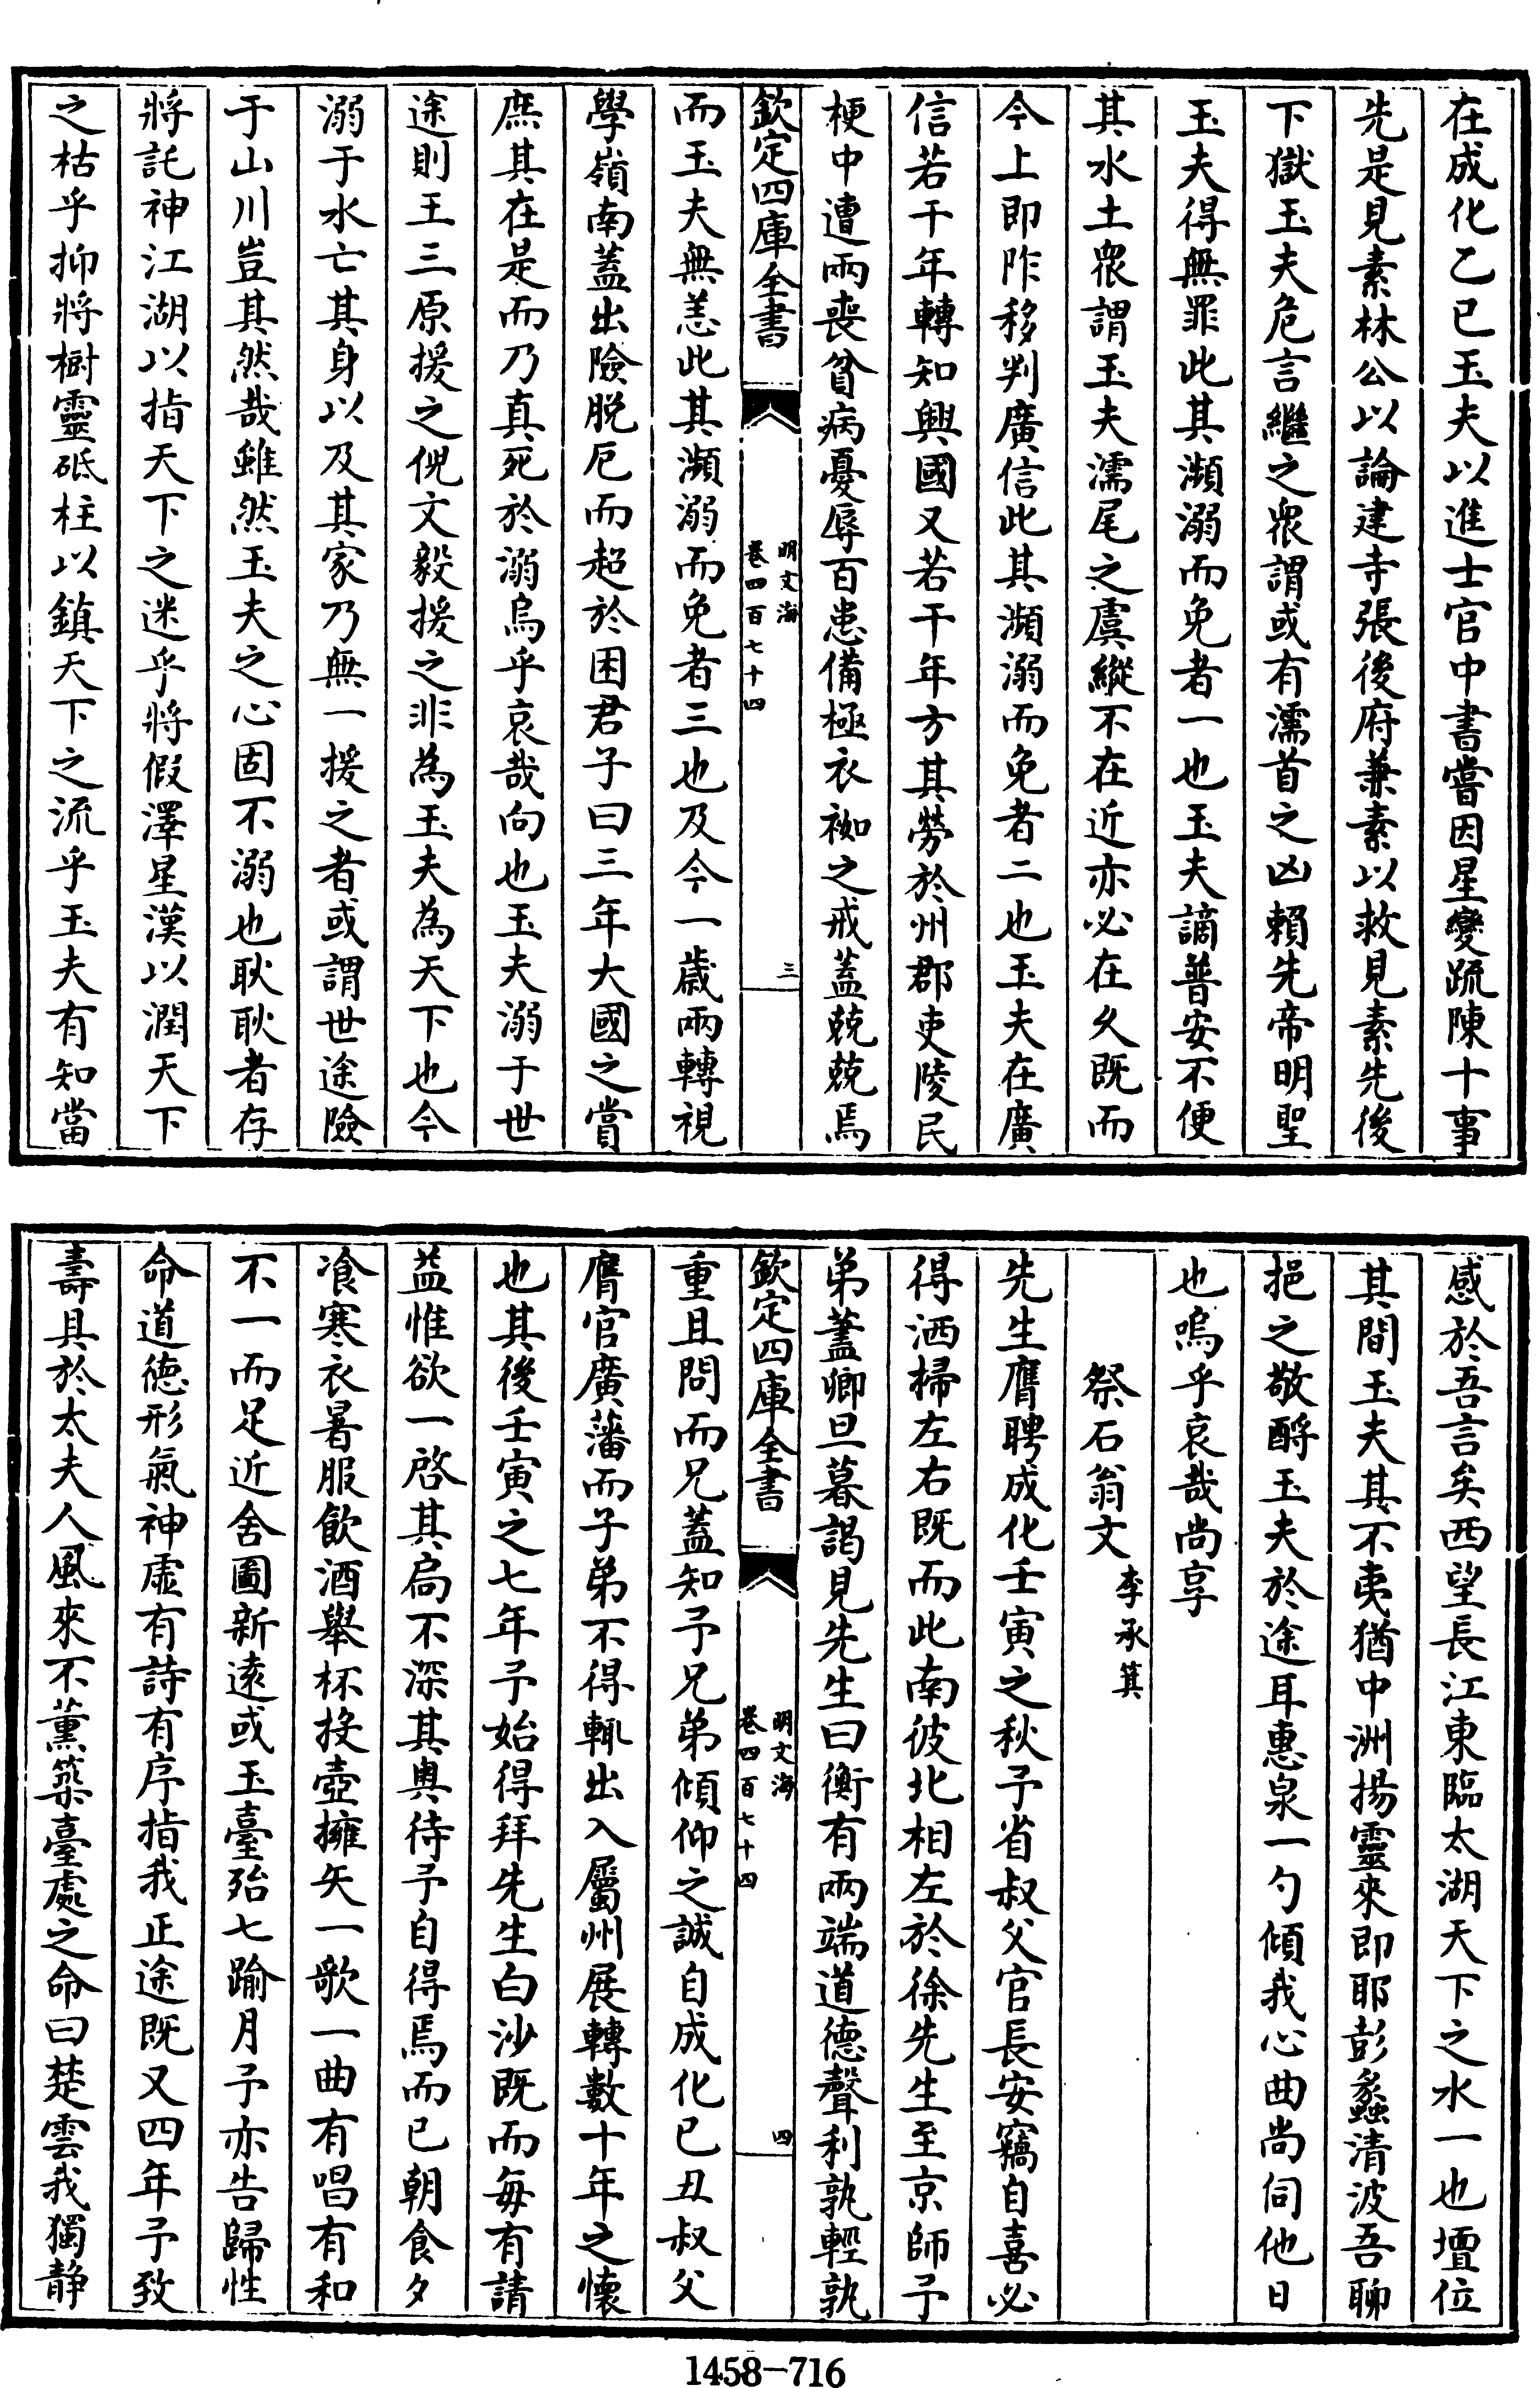 在成化乙巳玉夫以進士官中書嘗因星變疏陳十事
先是見素林公以論建寺張後府兼素以救見素先後
下獄玉夫危言繼之衆謂或有濡首之凶賴先帝明聖
玉夫得無罪此其瀕溺而免者一也玉夫謫普安不便
其水土衆謂玉夫濡尾之虞縱不在近亦必在久既而
今上即阼移判廣信此其瀕溺而免者二也玉夫在廣
信若干年轉知興國又若干年方其勞於州郡吏陵民
梗中遭兩喪貧病憂辱百患備極衣袽之戒蓋兢兢焉
欽定四庫全書
明文海
卷四百七十四
三
而玉夫無恙此其瀕溺而免者三也及今一歲兩轉視
學嶺南蓋出險脫厄而超於困君子曰三年大國之賞
庶其在是而乃真死於溺烏乎哀哉向也玉夫溺于世
途則王三原援之倪文毅援之非為玉夫為天下也今
溺于水亡其身以及其家乃無一援之者或謂世途險
于山川豈其然哉雖然玉夫之心固不溺也耿耿者存
將託神江湖以指天下之迷乎將假澤星漢以潤天下
之枯乎抑將樹靈砥柱以鎮天下之流乎玉夫有知當
感於吾言矣西望長江東臨太湖天下之水一也壇位
其間玉夫其不夷猶中洲揚靈來即耶彭蠡清波吾聊
挹之敬酹玉夫於途耳惠泉一勺傾我心曲尚伺他日
也嗚乎哀哉尚享
祭石翁文 李承箕
先生膺聘成化壬寅之秋予省叔父官長安竊自喜必
得洒掃左右既而此南彼北相左於徐先生至京師予
弟蓋卿旦暮謁見先生曰衡有兩端道德聲利孰輕孰
欽定四庫全書
明文海
卷四百七十四
四
重且問而兄蓋知予兄弟傾仰之誠自成化己丑叔父
膺官廣藩而子弟不得輒出入屬州展轉數十年之懷
也其後壬寅之七年予始得拜先生白沙既而每有請
益惟欲一啓其扃不深其奥待予自得焉而已朝食夕
飡寒衣暑服飲酒舉杯投壺擁矢一歌一曲有唱有和
不一而足近舍圖新遠或玉臺殆七踰月予亦告歸性
命道德形氣神虛有詩有序指我正途既又四年予致
壽具於太夫人風來不薰築臺處之命曰楚雲我獨静
1458-716